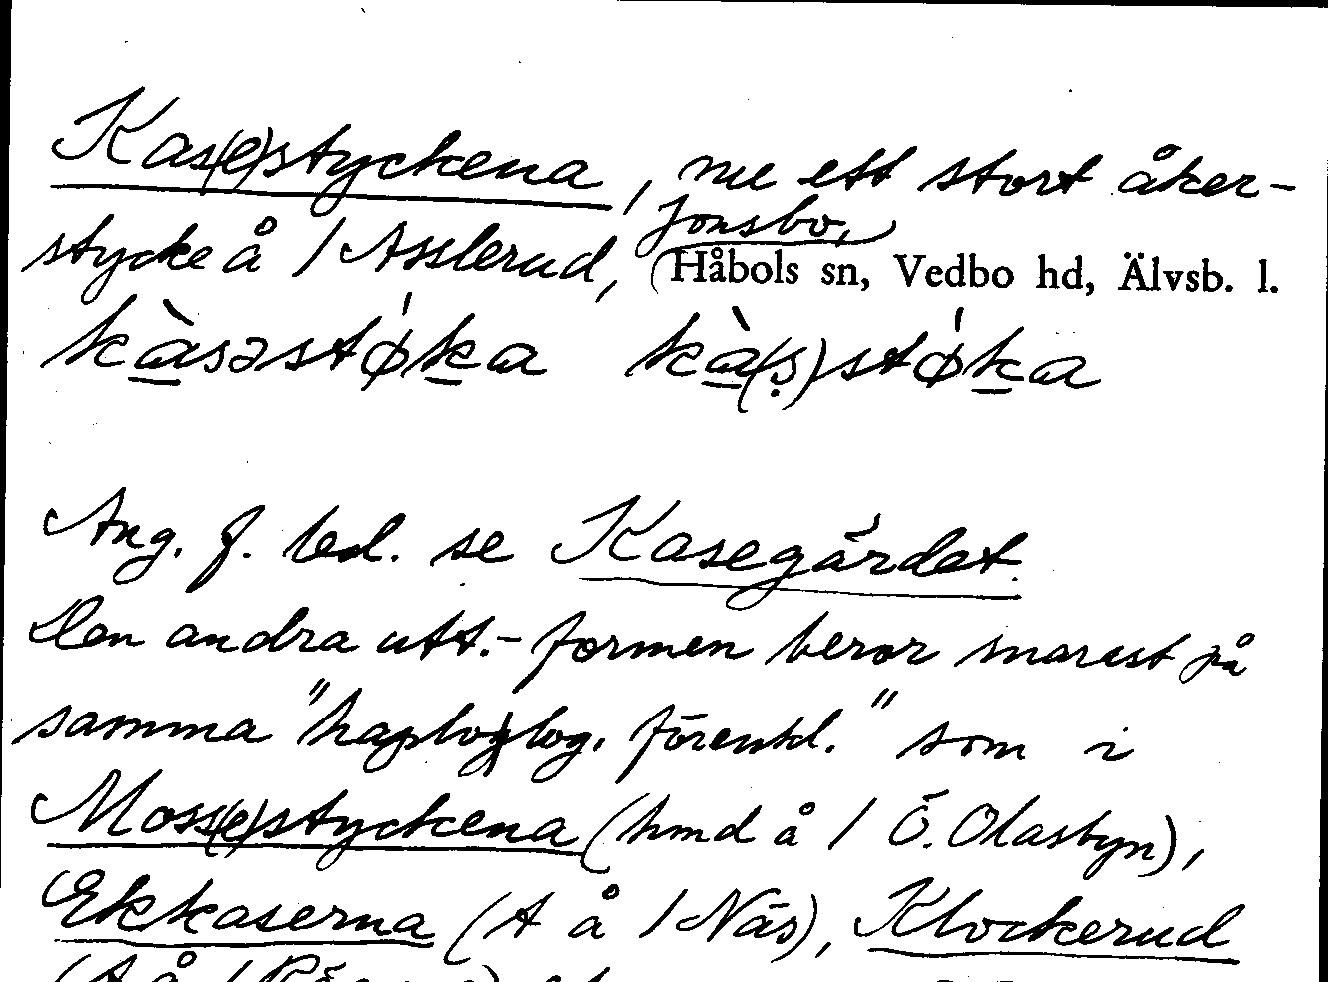 Kas(e)styckena, nu ett stort åker-
stycke å /Asslerud, Jonsbo,
(Håbols sn, Vedbo hd, Älvsb. l.
kàsəstǿka kà(ṣ)stǿka
Ang. f. led. se Kasegärdet.
Den andra utt.-formen beror snarast på
samma "haplolog. förenkl." som i
Moss(e)styckena (hmd å / Ö. Olasbyn),
Ekkaserna (A å / Näs), Klockerud
(A å /